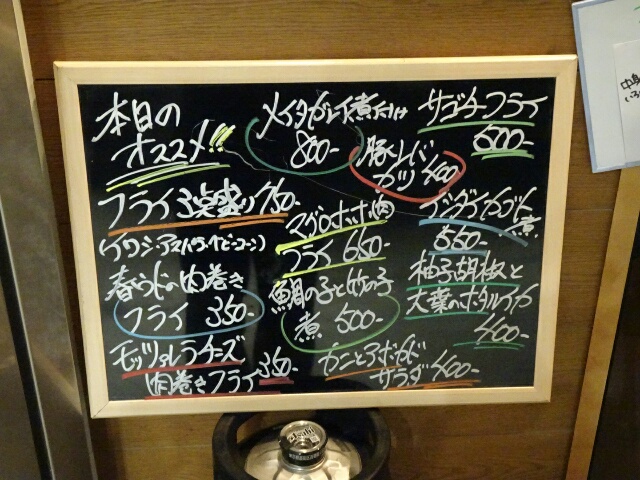 本日の
オススメ!!!
フライ3点盛り750-
(イワシ・アスパラ・ベビーコーン)
春うどの肉巻き
フライ 350-
モッツァレラチーズ
肉巻きフライ 350-
メイタガレイ煮付け
800-
豚レバ
カツ 400
マグロホホ肉
フライ 650-
鯛の子と竹の子
煮 500-
カニとアボカド
サラダ 400-
サゴチフライ
600-
煮
550-
柚子胡椒と
大葉のホタルイカ
400-